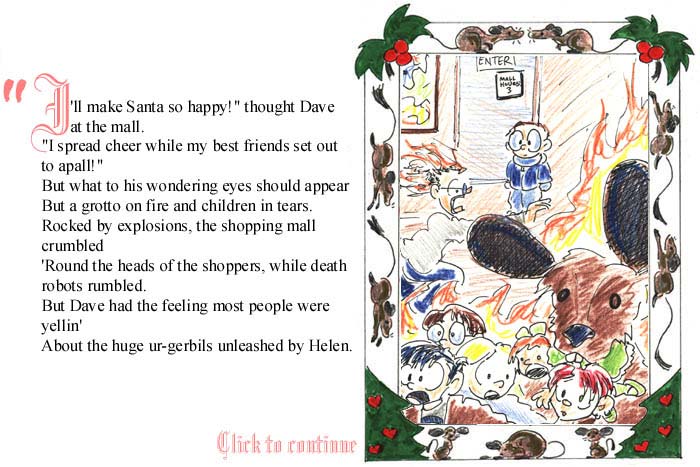 "I'll make Santa so happy!" thought Dave
at the mall.
"I spread cheer while my best friends set out
to apall!"
But what to his wondering eyes should appear
But a grotto on fire and children in tears.
Rocked by explosions, the shopping mall
crumbled
'Round the heads of the shoppers, while death
robots rumbled.
But Dave had the feeling most people were
yellin'
About the huge ur-gerbils unleashed by Helen.
Click to continue
ENTER!
MALL
HOURS
3